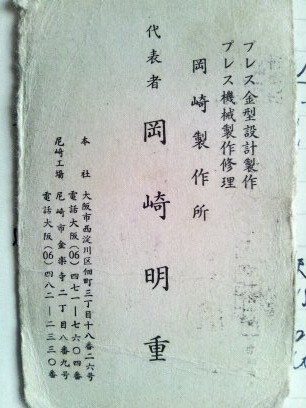 プレス金型設計製作
プレス機械製作修理
岡崎製作所
代表者 岡崎明重
本社 大阪市西淀川区佃町三丁目十八番二六号
電話大阪(06)四七一―七六〇四番
尼崎工場 尼崎市金楽寺二丁目八番九号
電話大阪(06)四八二―二三三〇番